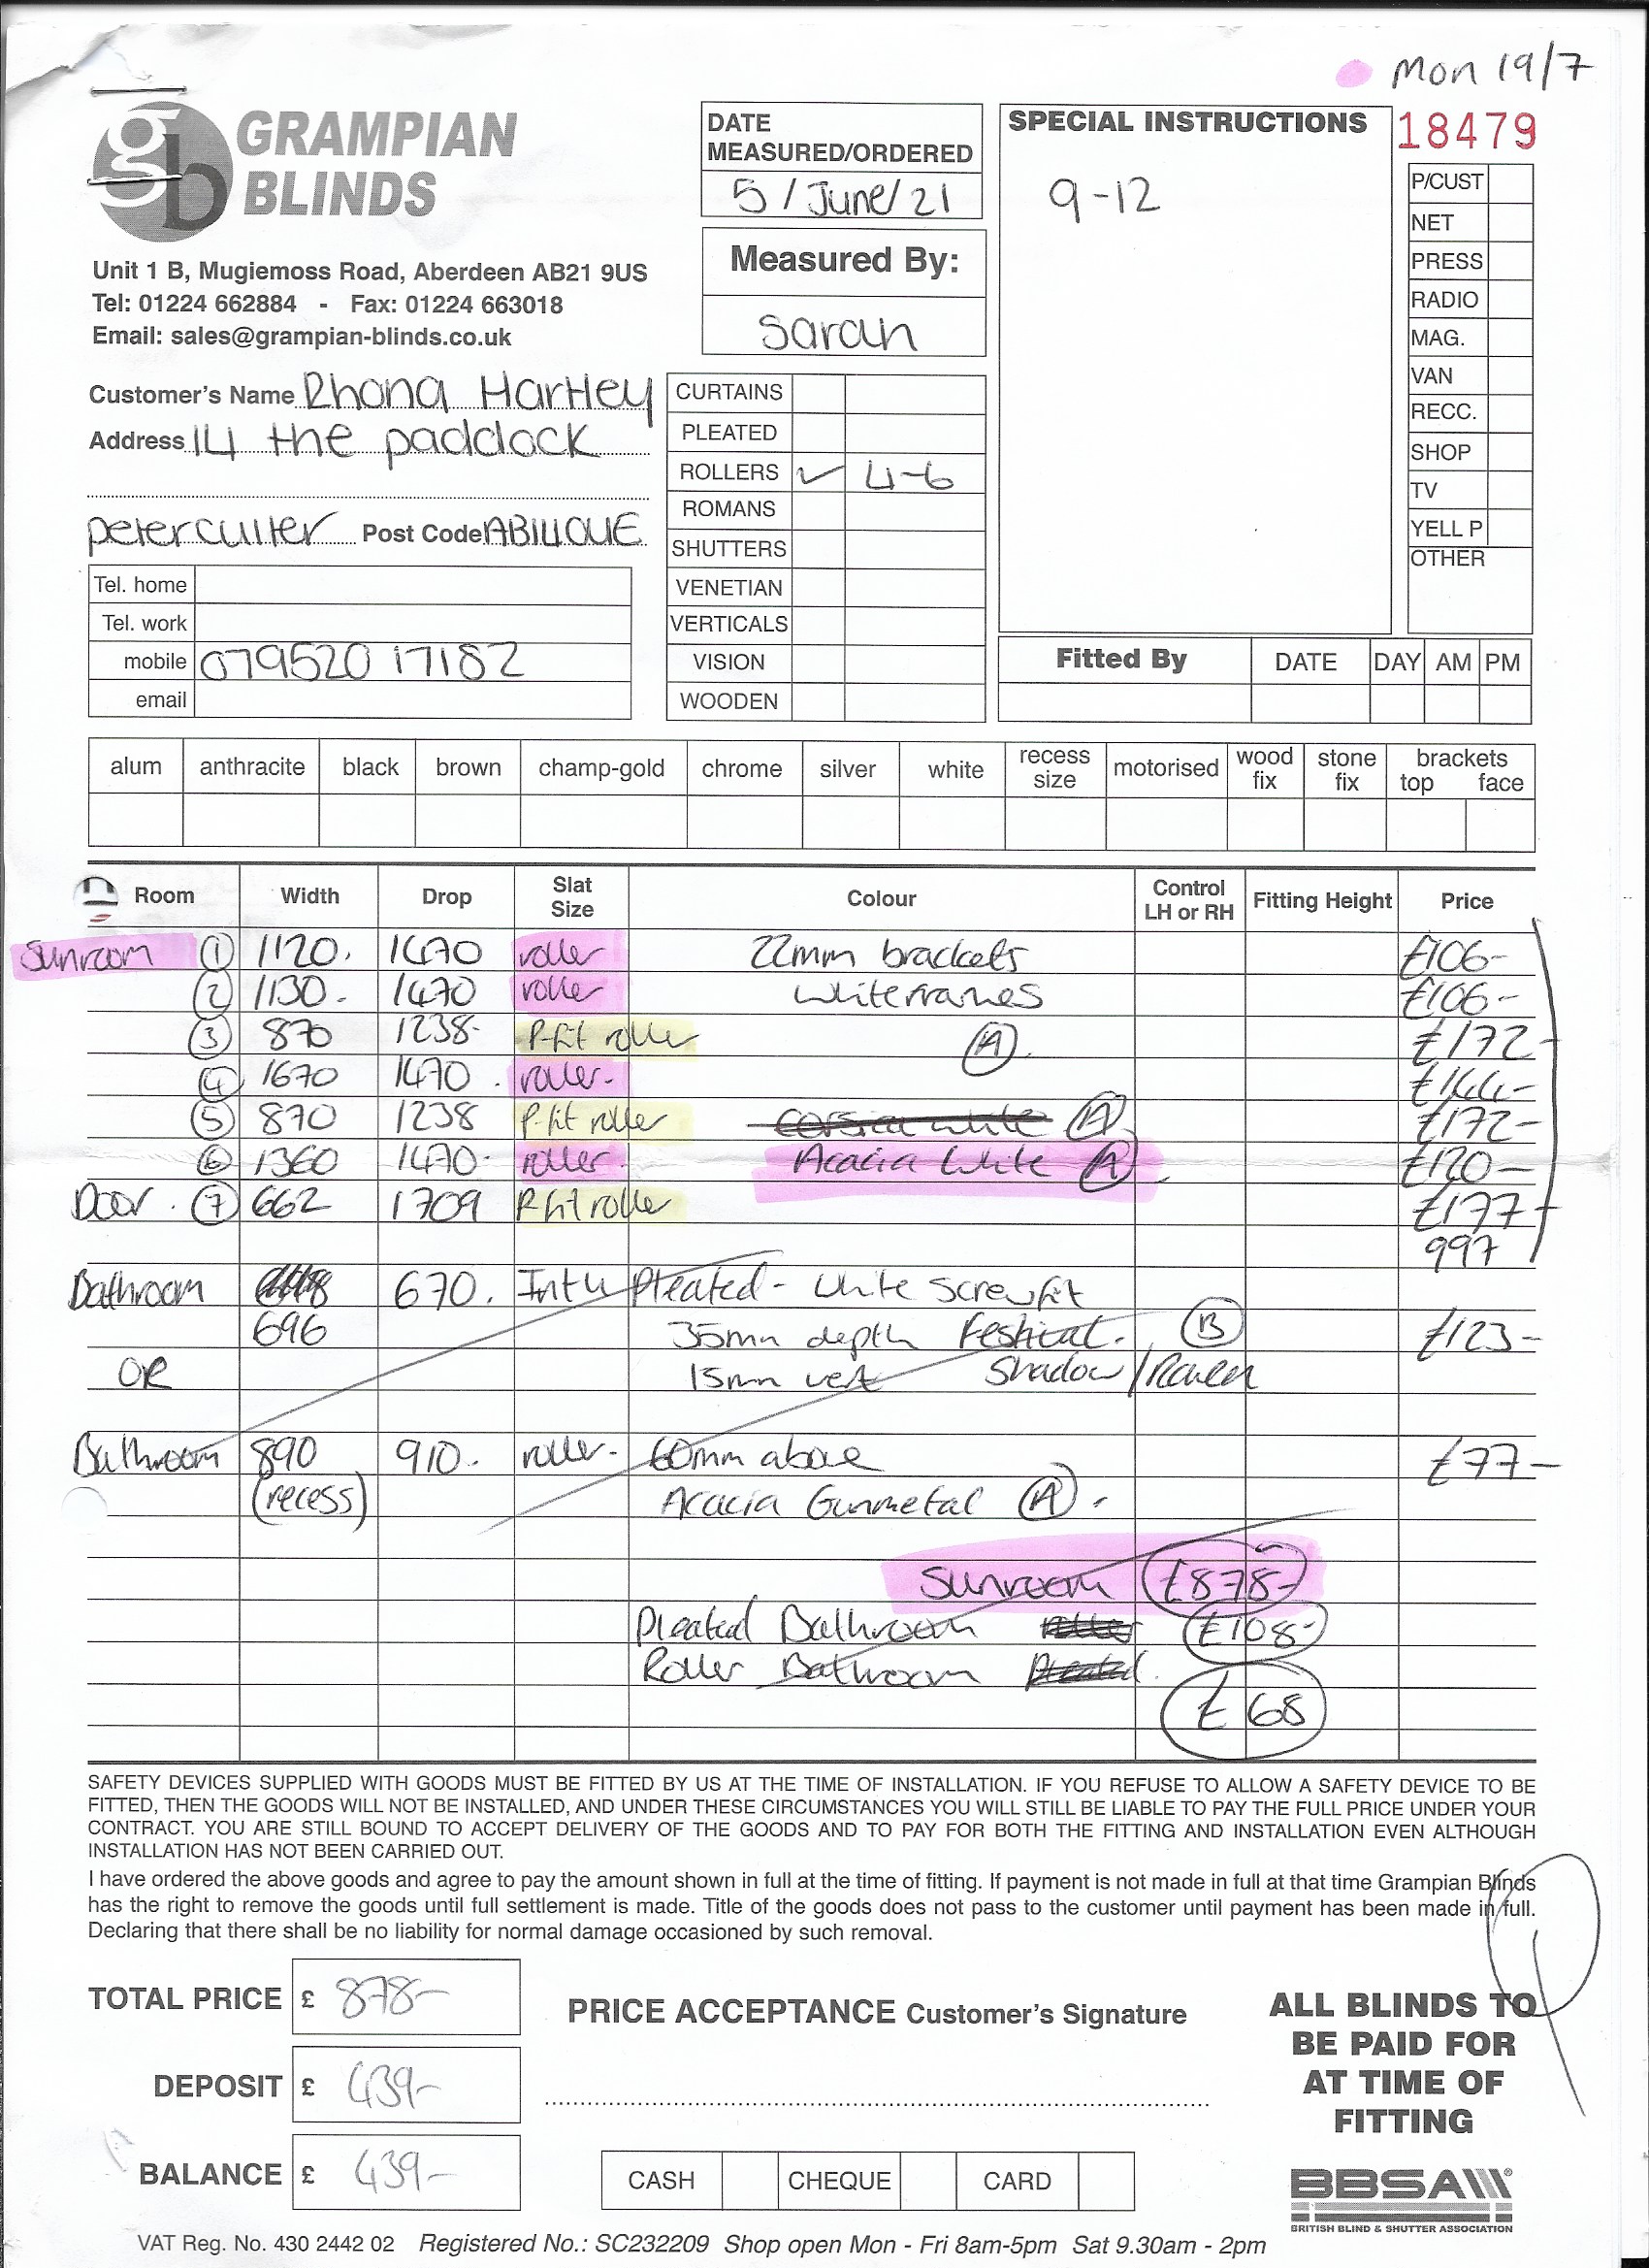 Mon 19/7
gb GRAMPIAN BLINDS
DATE MEASURED/ORDERED
5/June/21
Measured By:
Sarah
SPECIAL INSTRUCTIONS
9-12
18479
P/CUST
NET
PRESS
RADIO
MAG.
VAN
RECC.
SHOP
TV
YELL P
OTHER
Unit 1 B, Mugiemoss Road, Aberdeen AB21 9US
Tel: 01224 662884 - Fax: 01224 663018
Email: sales@grampian-blinds.co.uk
Customer's Name Rhona Hartley
Address 14 the paddock
peterculter Post Code AB14 OUE
Tel. home
Tel. work
mobile 079520 17182
email
CURTAINS
PLEATED
ROLLERS ✓ 4-6
ROMANS
SHUTTERS
VENETIAN
VERTICALS
VISION
WOODEN
Fitted By DATE DAY AM PM
alum anthracite black brown champ-gold chrome silver white recess size motorised wood fix stone fix brackets top face
Room Width Drop Slat Size Colour Control LH or RH Fitting Height Price
Sunroom 1 1120. 1470 roller 22mm brackets £106-
2 1130- 1470 roller white frames £106-
3 870 1238- P-fit roller A £172-
4 1670 1470. roller- £144-
5 870 1238 P-fit roller Corsica white A £172-
6 1360 1470- roller- Acacia White A £120-
Door. 7 662 1709 P-fit roller £177-
997
Bathroom 670. Intu Pleated - White Screwfit
696 35mm depth Festival. B £123-
OR 15mm vert Shadow/Raven
Bathroom 890 910. roller- 60mm above £77-
(recess) Acacia Gunmetal A.
Sunroom £878-
Pleated Bathroom roller £108-
Roller Bathroom pleated
£68
SAFETY DEVICES SUPPLIED WITH GOODS MUST BE FITTED BY US AT THE TIME OF INSTALLATION. IF YOU REFUSE TO ALLOW A SAFETY DEVICE TO BE
FITTED, THEN THE GOODS WILL NOT BE INSTALLED, AND UNDER THESE CIRCUMSTANCES YOU WILL STILL BE LIABLE TO PAY THE FULL PRICE UNDER YOUR
CONTRACT. YOU ARE STILL BOUND TO ACCEPT DELIVERY OF THE GOODS AND TO PAY FOR BOTH THE FITTING AND INSTALLATION EVEN ALTHOUGH
INSTALLATION HAS NOT BEEN CARRIED OUT.
I have ordered the above goods and agree to pay the amount shown in full at the time of fitting. If payment is not made in full at that time Grampian Blinds
has the right to remove the goods until full settlement is made. Title of the goods does not pass to the customer until payment has been made in full.
Declaring that there shall be no liability for normal damage occasioned by such removal.
TOTAL PRICE £ 878-
DEPOSIT £ 439-
BALANCE £ 439-
PRICE ACCEPTANCE Customer's Signature
CASH CHEQUE CARD
ALL BLINDS TO
BE PAID FOR
AT TIME OF
FITTING
BBSA
BRITISH BLIND & SHUTTER ASSOCIATION
VAT Reg. No. 430 2442 02 Registered No.: SC232209 Shop open Mon - Fri 8am-5pm Sat 9.30am - 2pm